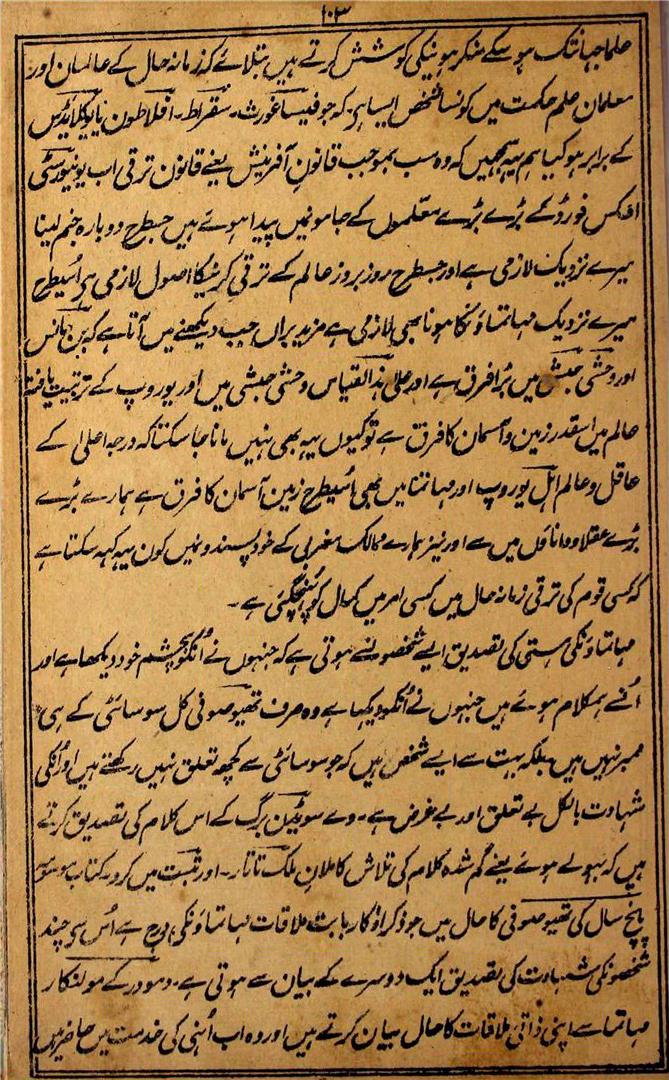 ۱۰۳
علما جہانتک ہوسکے منکر ہونیکی کوشش کرتے ہیں بتلائے کہ زمانہ حال کے عالمان اور
معلمان علم حکمت میں کونسا شخص ایسا ہے کہ جو فیساغورث۔ سقراط۔ افلاطون یا یوکلائیڈس
کے برابر ہو کیا ہم یہہ سمجہیں کہ وہ سب بموجب قانون آفرینش یعنے قانون ترقی اب یونیورسٹی
اوکس فورڈ کے بڑے بڑے معلموں کے جامونمیں پیدا ہوئے ہیں جسطح دوبارہ جنم لینا
میرے نزدیک لازمی ہے اور جسطرح روز بروز عالم کے ترقی کرنیکا اصول لازمی ہی اُسیطح
میرے نزدیک مہاتماؤنکا ہونا بھی لازمی ہے مزید براں جب دیکھنے میں آتا ہے کہ بن مانس
اور وحشی حبشی میں بڑا فرق ہے اور علی ہذالقیاس وحشی حبشی میں اور یوروپ کے تربیت یافتہ
عالم میں اسقدر زمین و آسمان کا فرق ہے تو کیوں یہہ بھی نہیں مانا جا سکتا کہ درجہ اعلیٰ کے
عاقل و عالم اہل یوروپ اور مہاتما میں بھی اُسیطرح زمین آسمان کا فرق ہے ہمارے بڑے
بڑے عقلا و داناؤں میں سے اور نیز ہمارے ممالک مغربی کے خود پسندونمیں کون یہہ کہہ سکتا ہے
کہ کسی قوم کی ترقی زمانہ حال میں کسی امر میں کمال کو پہنچگئی ہے۔
مہاتماؤنکی ہستی کی تصدیق ایسے شخصونسے ہوتی ہے کہ جنہوں نے اُنکو بچشم خود دیکھا ہے اور
اُنسے ہمکلام ہوئے ہیں جنہوں نے اُنکو دیکہا ہے وہ صرف تھیوصوفی کل سوسائٹی کے ہی
ممبر نہیں ہیں بلکہ بہت سے ایسے شخص ہیں کہ جو سوسائٹی سے کچھ تعلق نہیں رکھتے ہیں اور اُنکی
شہادت بالکل بے تعلق اور بے غرض ہے۔ وے سویڈن برگ کے اس کلام کی تصدیق کرتے
ہیں کہ بہولے ہوئے یعنے گم شدہ کلام کی تلاش کاملان ملک تاتار۔ اور تبت میں کرو۔ کتاب موسومہ
پانچ سال کی تھیوصوفی کا حال میں جو ذکر اذکار بابت ملاقات مہاتماؤنکی درج ہے اُس سے چند
شخصونکی شہادت کی تصدیق ایک دوسرے کے بیان سے ہوتی ہے۔ دمودر کے مولنکار
مہاتما سے اپنی ذاتی ملاقات کا حال بیان کرتے ہیں اور وہ اب اُنہی کی خدمت میں حاضر ہیں